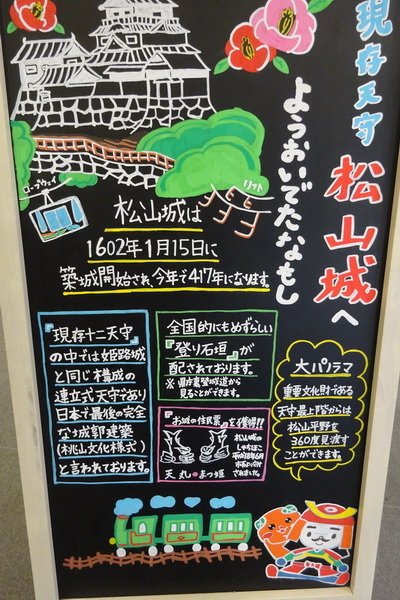 現存天守
松山城へ
ようおいでたなもし
ロープウェイ
リフト
松山城は
1602年1月15日に
築城開始され、今年で417年になります。
『現存十二天守』
の中では姫路城
と同じ構成の
連立式天守であり
日本で最後の完全
なる城郭建築
(桃山文化様式)
と言われております。
全国的にもめずらしい
『登り石垣』が
配されております。
※県庁裏登城道から
見ることができます。
『お城の住民票』を獲得!!
松山城の
しゃちほこ
平成18年6月
天丸 まつ姫
されました。
大パノラマ
重要文化財である
天守最上階からは
松山平野を
360度見渡す
ことができます。